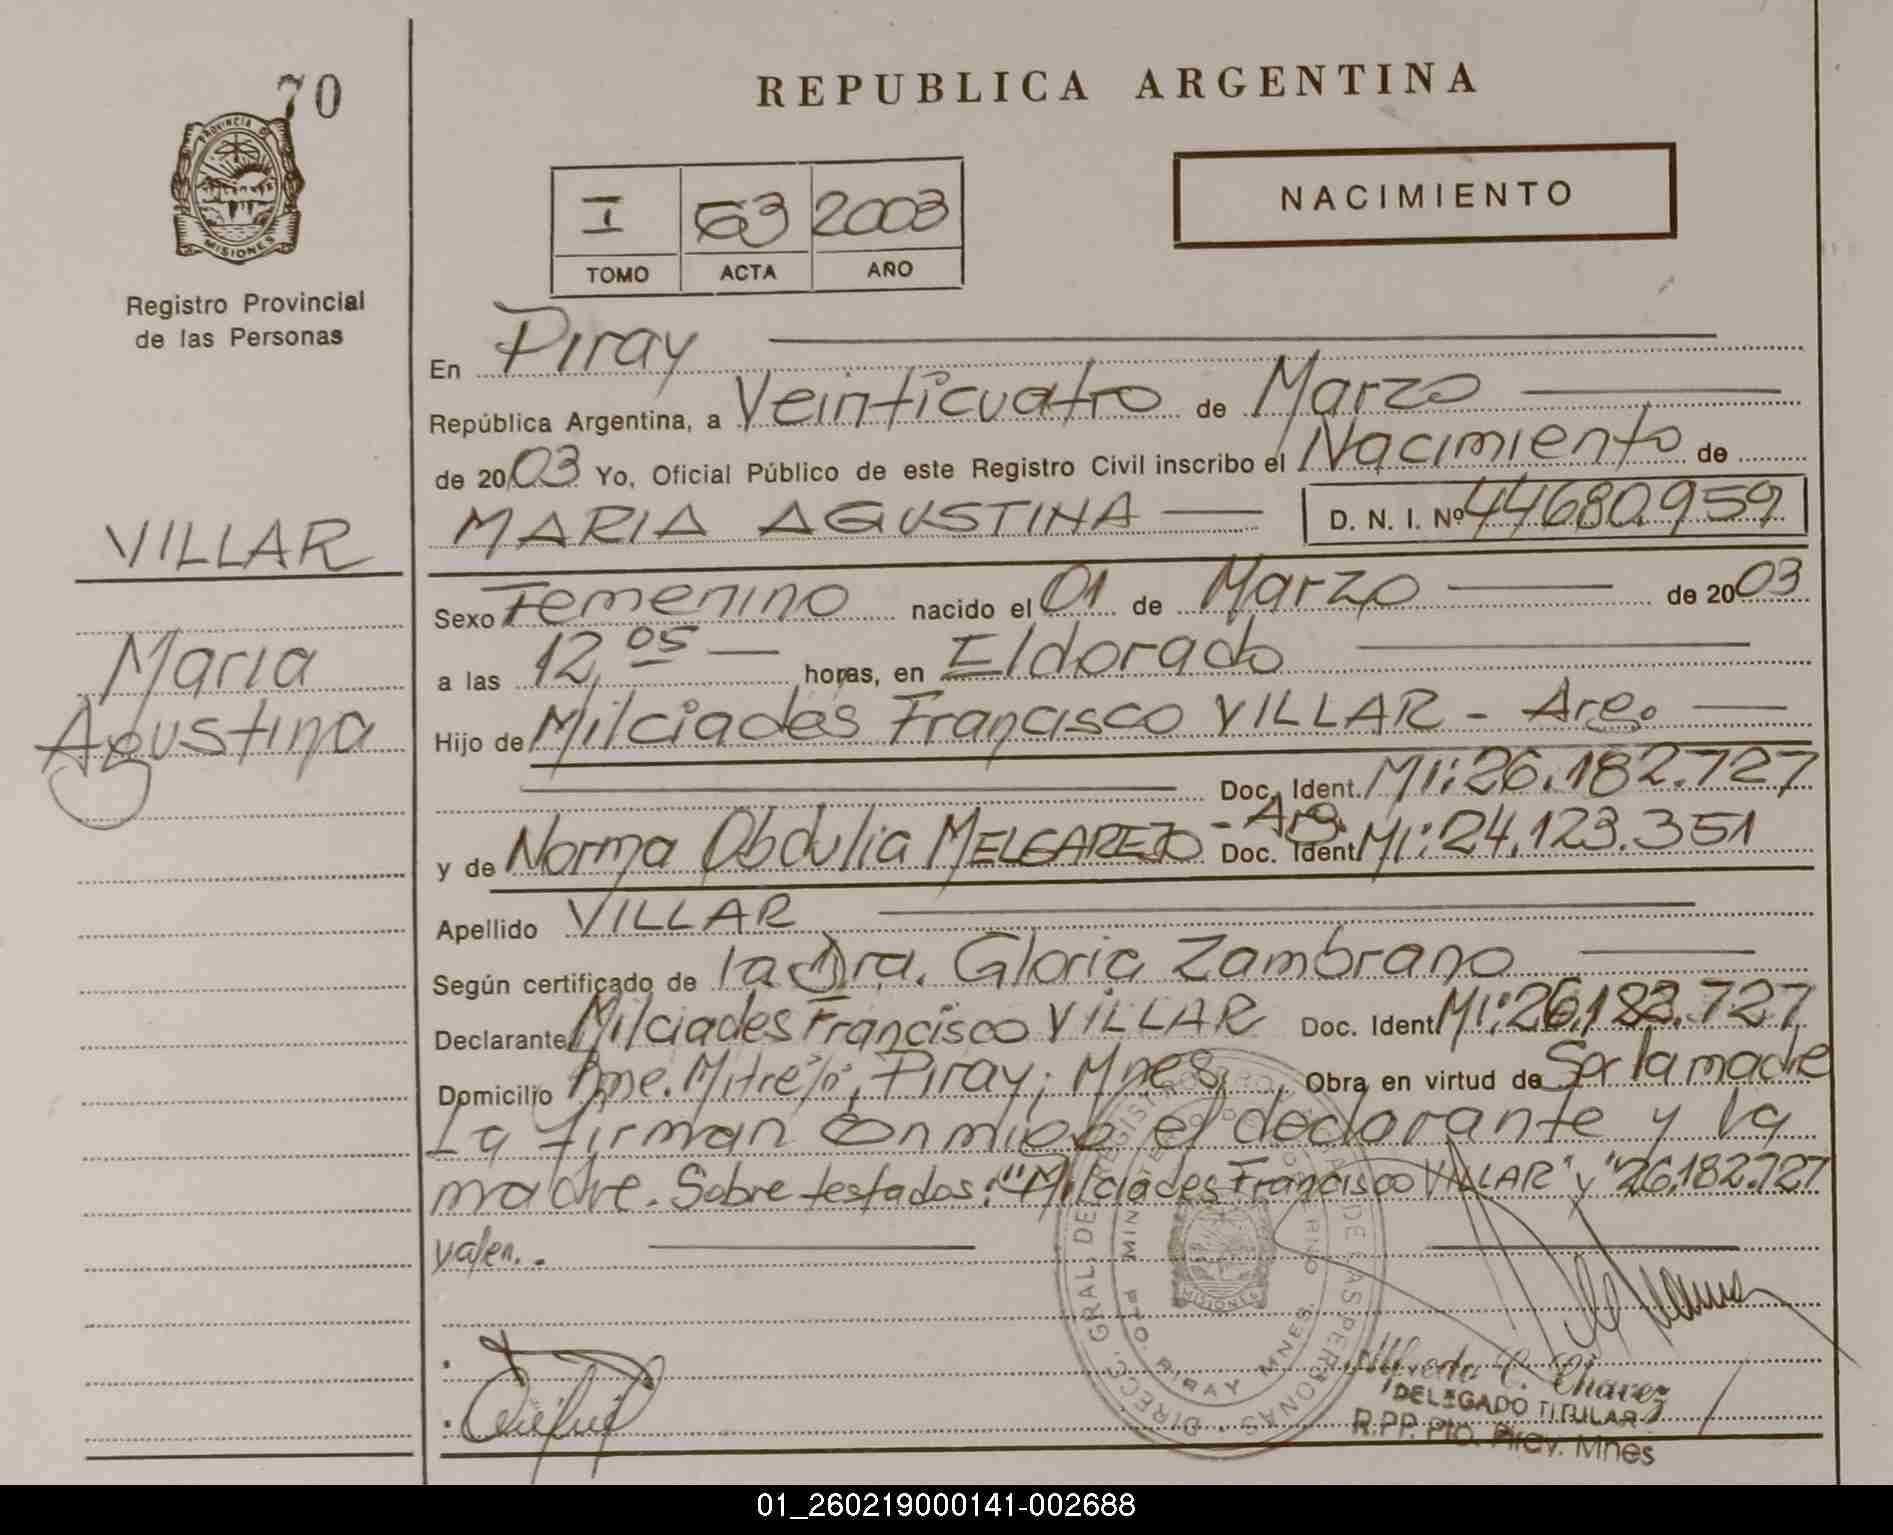 70
REPUBLICA ARGENTINA
PROVINCIA DE
MISIONES
Registro Provincial
de las Personas
NACIMIENTO
I 63 2003
TOMO ACTA AÑO
En Piray
República Argentina, a Veinticuatro de Marzo
de 2003 Yo, Oficial Público de este Registro Civil inscribo el Nacimiento de
MARIA AGUSTINA D. N. I. Nº 44680.959
VILLAR
Maria
Agustina
Sexo Femenino nacido el 01 de Marzo de 2003
a las 12,05 horas, en Eldorado
Hijo de Milciades Francisco VILLAR - Arg.
Doc. Ident. MI: 26.182.727
y de Norma Obdulia MELGAREJO - Arg. Doc. Ident MI: 24.123.351
Apellido VILLAR
Según certificado de la Dra. Gloria Zambrano
Declarante Milciades Francisco VILLAR Doc. Ident MI: 26.182.727
Domicilio Bme. Mitre s/nº, Piray, Mnes, Obra en virtud de Ser la madre
La firman conmigo el declarante y la
madre. Sobre testados: "Milciades Francisco VILLAR" y "26.182.727
valen..
DIRECC. GRAL. DE REGISTRO PROV. DE LAS PERSONAS
MINISTERIO DE GOBIERNO
MISIONES
PTO. PIRAY MNES.
Alfredo C. Chavez
DELEGADO TITULAR
R.PP. Pto. Piray. Mnes
01_260219000141-002688